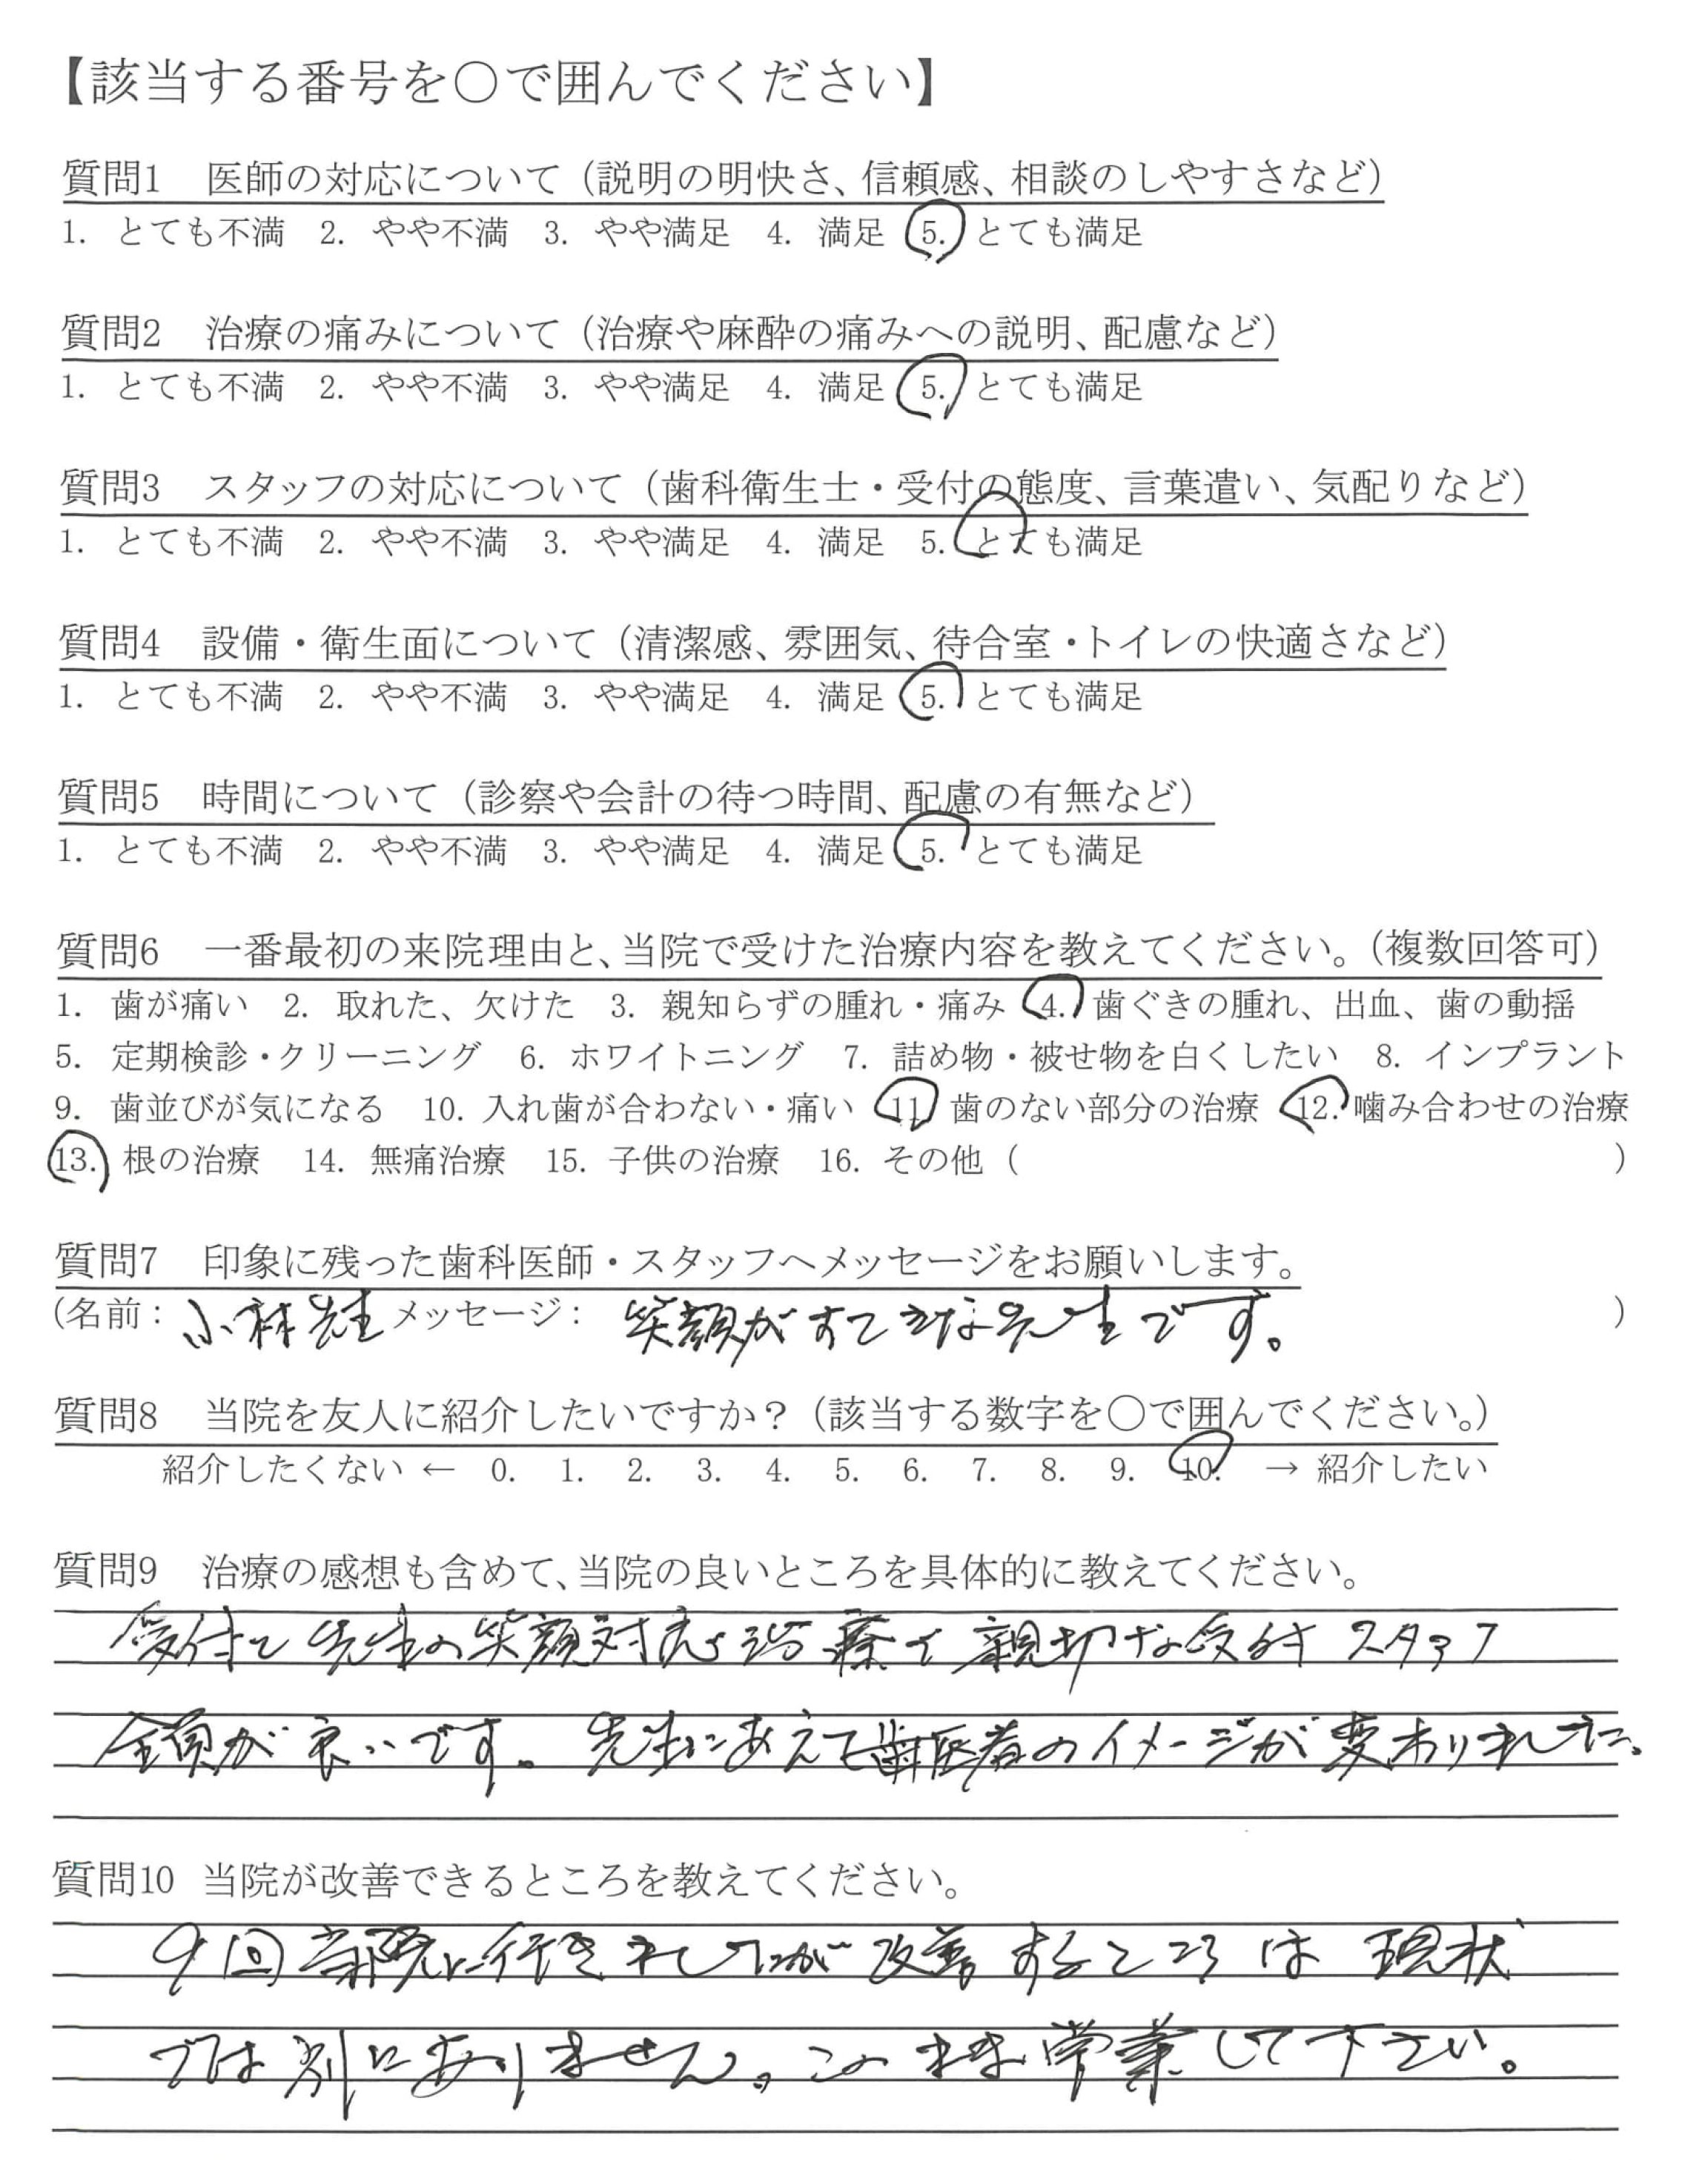 【該当する番号を○で囲んでください】
質問1　医師の対応について（説明の明快さ、信頼感、相談のしやすさなど）
1. とても不満　2. やや不満　3. やや満足　4. 満足　5. とても満足
質問2　治療の痛みについて（治療や麻酔の痛みへの説明、配慮など）
1. とても不満　2. やや不満　3. やや満足　4. 満足　5. とても満足
質問3　スタッフの対応について（歯科衛生士・受付の態度、言葉遣い、気配りなど）
1. とても不満　2. やや不満　3. やや満足　4. 満足　5. とても満足
質問4　設備・衛生面について（清潔感、雰囲気、待合室・トイレの快適さなど）
1. とても不満　2. やや不満　3. やや満足　4. 満足　5. とても満足
質問5　時間について（診察や会計の待つ時間、配慮の有無など）
1. とても不満　2. やや不満　3. やや満足　4. 満足　5. とても満足
質問6　一番最初の来院理由と、当院で受けた治療内容を教えてください。（複数回答可）
1. 歯が痛い　2. 取れた、欠けた　3. 親知らずの腫れ・痛み　4. 歯ぐきの腫れ、出血、歯の動揺
5. 定期検診・クリーニング　6. ホワイトニング　7. 詰め物・被せ物を白くしたい　8. インプラント
9. 歯並びが気になる　10. 入れ歯が合わない・痛い　11. 歯のない部分の治療　12. 噛み合わせの治療
13. 根の治療　14. 無痛治療　15. 子供の治療　16. その他（　　　）
質問7　印象に残った歯科医師・スタッフへメッセージをお願いします。
（名前：小林先生 メッセージ：笑顔がすてきな先生です。）
質問8　当院を友人に紹介したいですか？（該当する数字を○で囲んでください。）
紹介したくない ← 0.　1.　2.　3.　4.　5.　6.　7.　8.　9.　10.　→ 紹介したい
質問9　治療の感想も含めて、当院の良いところを具体的に教えてください。
受付と先生の笑顔対応 治療て 親切な受付 スタッフ
全員が良いです。先生にあえて歯医者のイメージが変わりました。
質問10　当院が改善できるところを教えてください。
9回当院に行きましたが改善するところは 現状
では別にありません。このまま営業して下さい。